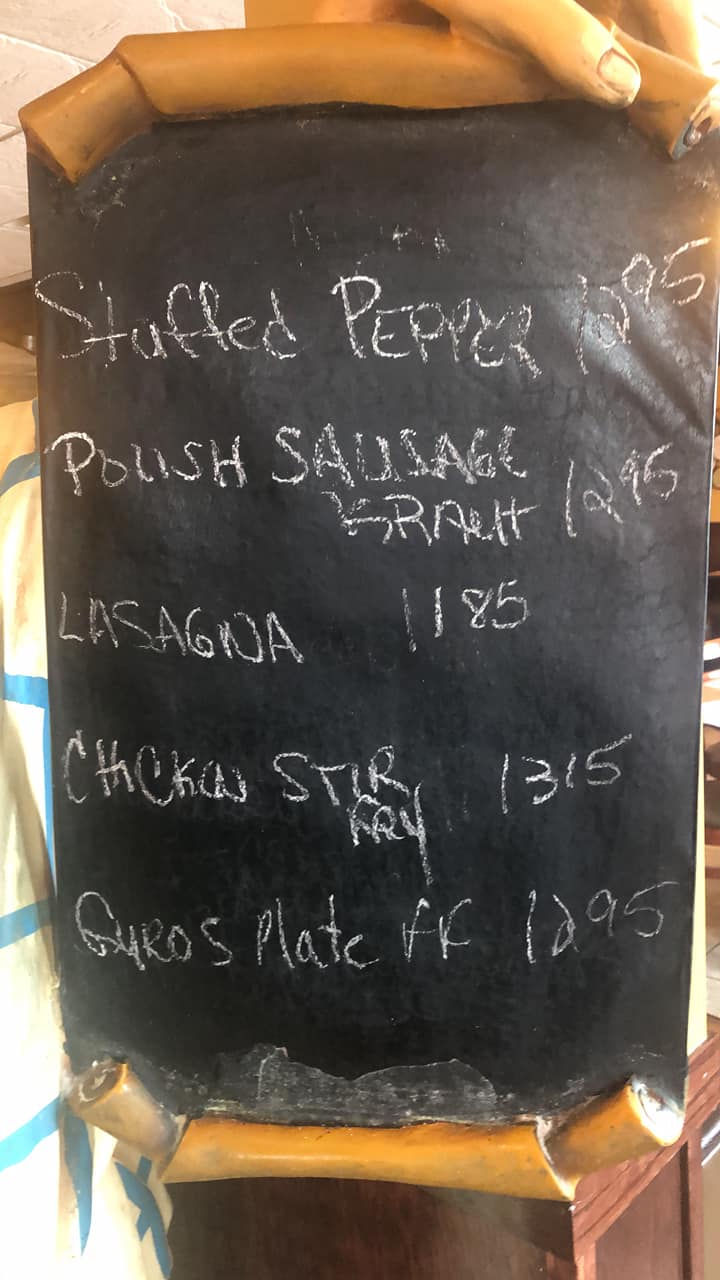 Stuffed PEPPER 1295
POLISH SAUSAGE
KRAUT 1295
LASAGNA 1185
CHICKEN STIR 1315
FRY
GYROS Plate FF 1295